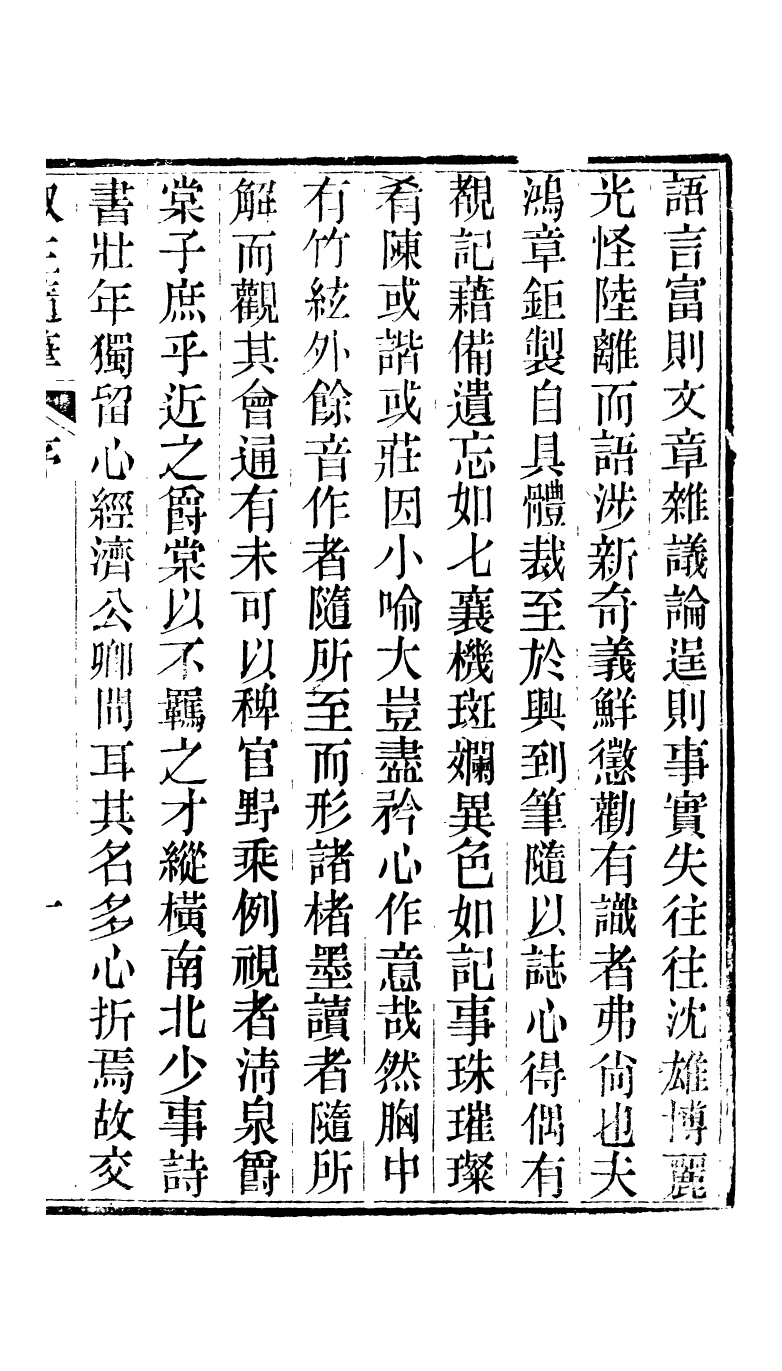 語言富則文章雜議論逞則事實失往往沈雄博麗
光怪陸離而語涉新奇義鮮懲勸有識者弗尙也夫
鴻章鉅製自具體裁至於興到筆隨以誌心得偶有
覩記藉備遺忘如七襄機斑斕異色如記事珠璀璨
肴陳或諧或莊因小喻大豈盡矜心作意哉然胸中
有竹絃外餘音作者隨所至而形諸楮墨讀者隨所
解而觀其會通有未可以稗官野乘例視者淸泉爵
棠子庶乎近之爵棠以不羈之才縱橫南北少事詩
書壯年獨留心經濟公卿間耳其名多心折焉故交
隨筆 序 一